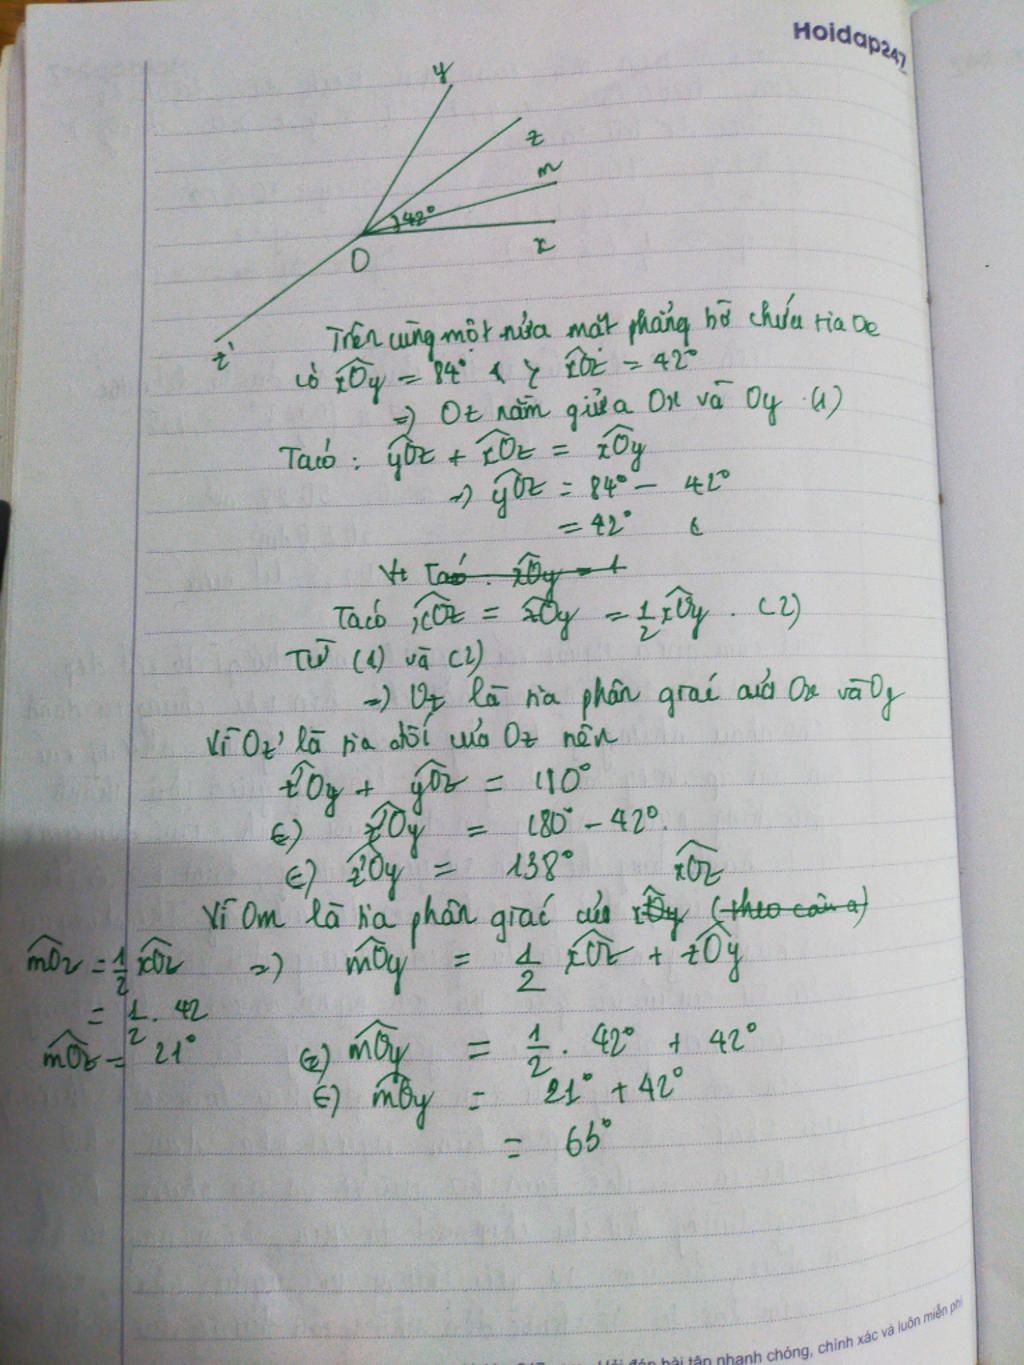 Hoidap247
y
z
m
42°
x
O
z'
Trên cùng một nửa mặt phẳng bờ chứa tia Ox
có xOy = 84° xOz = 42°
=) Oz nằm giữa Ox và Oy (1)
Ta có : yOz + xOz = xOy
=) yOz = 84° - 42°
= 42°
Ta có : xOy =
Ta có xOz = zOy = 1/2 xOy . (2)
Từ (1) và (2)
=) Oz là tia phân giác của Ox và Oy
Vì Oz' là tia đối của Oz nên
z'Oy + yOz = 180°
(=) z'Oy = 180° - 42°.
(=) z'Oy = 138° xOz
Vì Om là tia phân giác của xOy (theo câu a)
mOz = 1/2 xOz =) mOy = 1/2 xOz + zOy
= 1/2 . 42
mOz = 21° (=) mOy = 1/2 . 42° + 42°
(=) mOy = 21° + 42°
= 63°
Hỏi đáp bài tập nhanh chóng, chính xác và luôn miễn phí